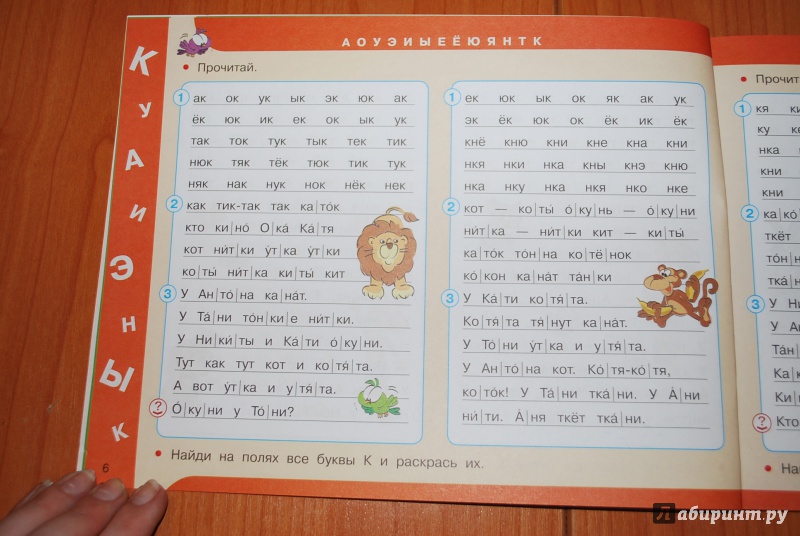 А О У Э И Ы Е Ё Ю Я Н Т К
К У А И Э Н Ы К
• Прочитай.
1 ак ок ук ык эк юк ак
ёк юк ик ек ок ык ук
так ток тук тык тек тик
нюк тяк тёк тюк тик тук
няк нак нук нок нёк нек
2 как тик-так так ка|то́к
кто ки|но́ О|ка́ Ка́|тя
кот ни́т|ки у́т|ка у́т|ки
ко|ты́ ни́т|ка ки|ты́ кит
3 У Ан|то́|на ка|на́т.
У Та́|ни то́н|ки|е ни́т|ки.
У Ни|ки́|ты и Ка́|ти о́|ку|ни.
Тут как тут кот и ко|тя́|та.
А вот у́т|ка и у|тя́|та.
? О́|ку|ни у То́|ни?
1 ек юк ык ок як ак ук
эк ёк юк ок ёк ик ёк
кнё кню кни кне кна кни
нкя нки нка кны кнэ кню
нка нку нка нкя нко нке
2 кот — ко|ты́ о́|ку|нь — о́|ку|ни
ни́т|ка — ни́т|ки кит — ки|ты́
ка|то́к то́н|на ко|тё|нок
ко́|кон ка|на́т та́н|ки
3 У Ка́|ти ко|тя́|та.
Ко|тя́|та тя́|нут ка|на́т.
У То́|ни у́т|ка и у|тя́|та.
У Ан|то́|на кот. Ко́|тя-ко́|тя,
ко|то́к! У Та́|ни тка́|ни. У А́|ни
ни́|ти. А́|ня ткёт тка́|ни.
• Найди на полях все буквы К и раскрась их.
6
• Прочит
1 кя
ку
нка
кни
кни
2
ткёт
3 У
У
? Кто
Лабиринт.ру